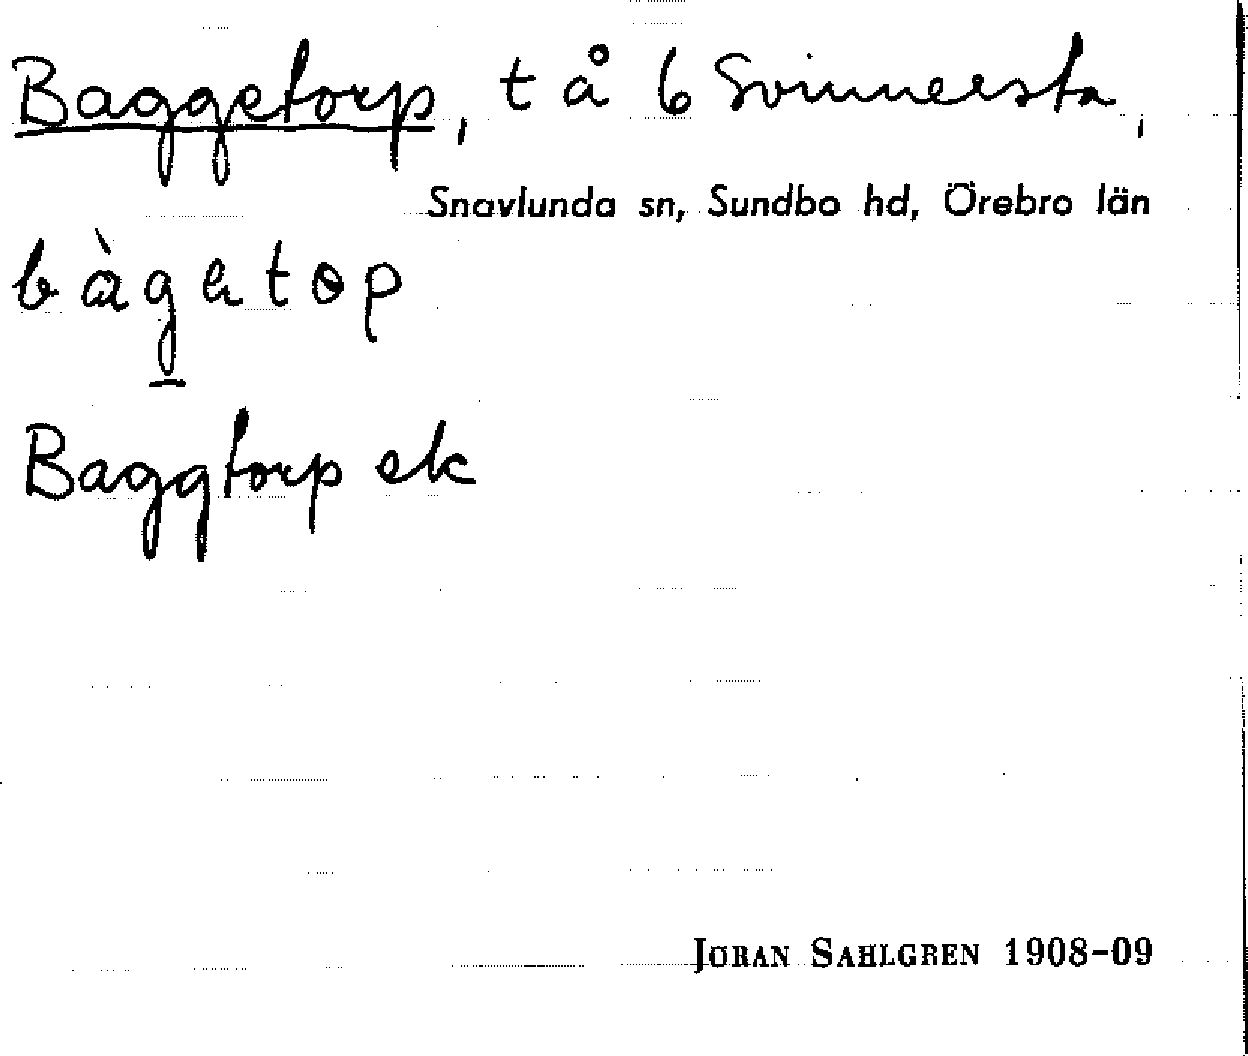 Baggetorp, t å 6 Svinnersta,
Snavlunda sn, Sundbo hd, Örebro län
bàgətop
Baggtorp ek
JÖRAN SAHLGREN 1908-09